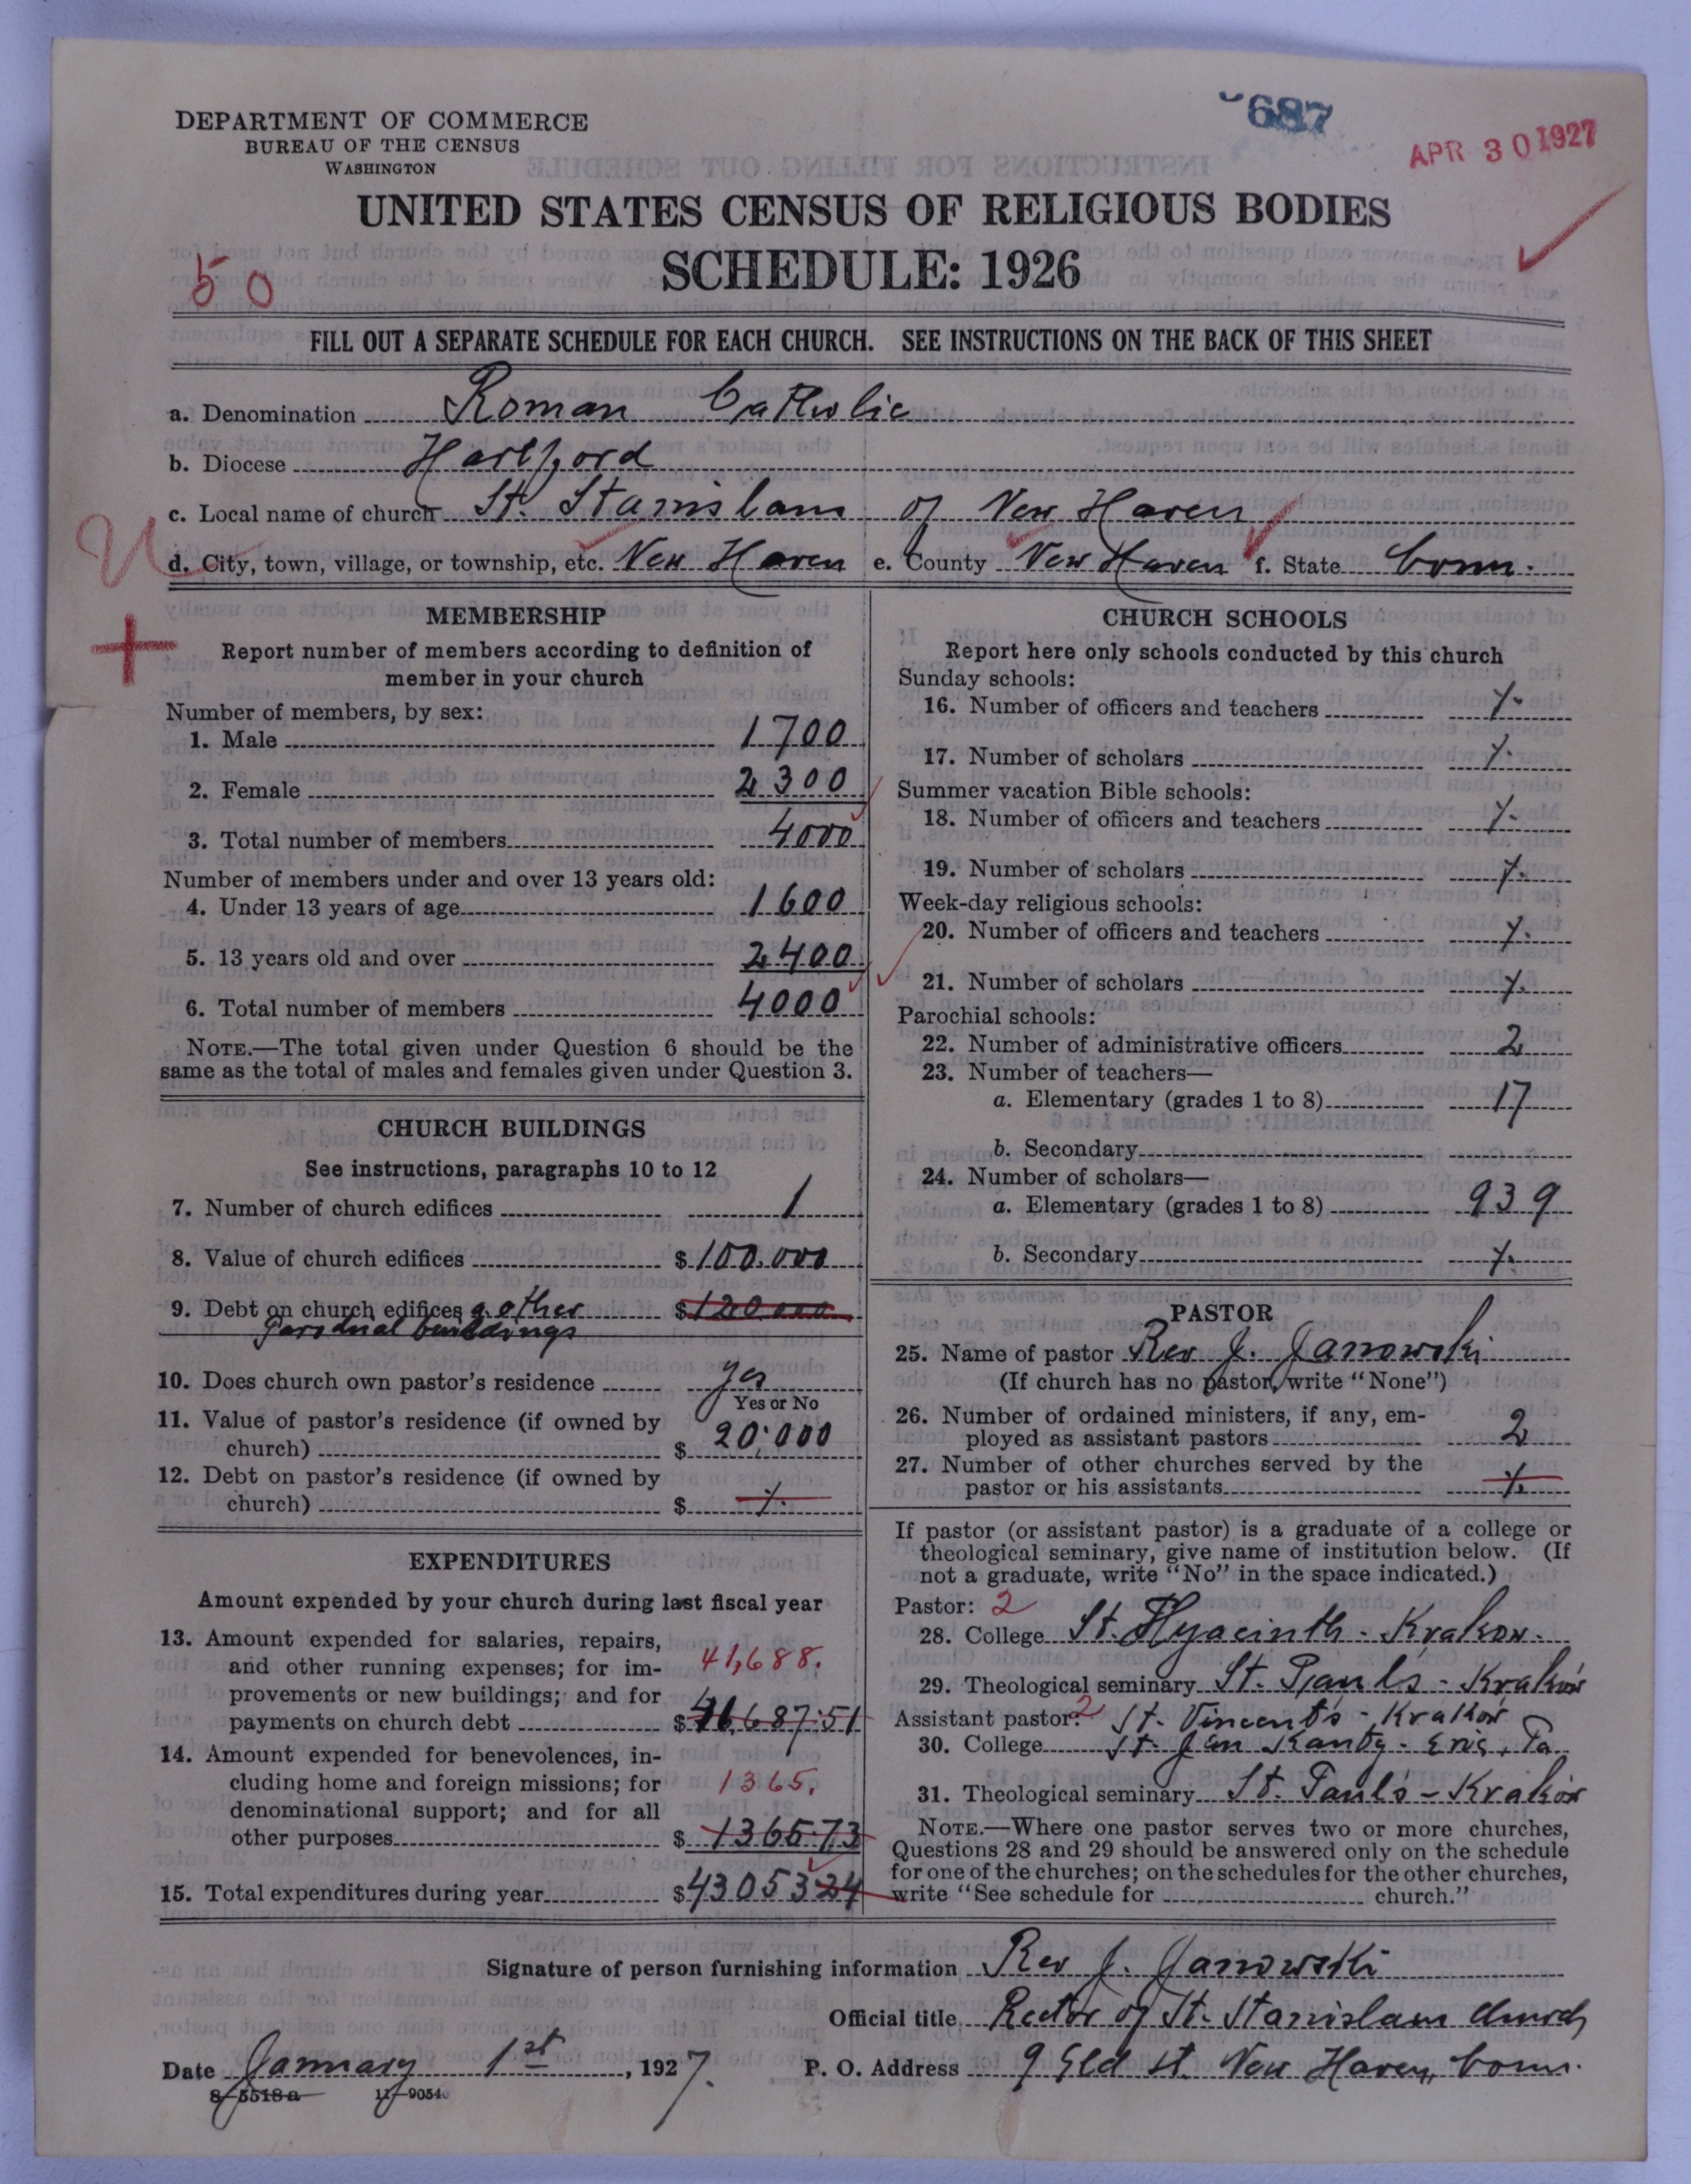 687
APR 30 1927
DEPARTMENT OF COMMERCE
BUREAU OF THE CENSUS
WASHINGTON
UNITED STATES CENSUS OF RELIGIOUS BODIES
SCHEDULE: 1926
50
FILL OUT A SEPARATE SCHEDULE FOR EACH CHURCH. SEE INSTRUCTIONS ON THE BACK OF THIS SHEET
a. Denomination Roman Catholic
b. Diocese Hartford
c. Local name of church St. Stanislaus of New Haven
d. City, town, village, or township, etc. New Haven e. County New Haven f. State Conn.
MEMBERSHIP
Report number of members according to definition of
member in your church
Number of members, by sex:
1. Male 1700
2. Female 2300
3. Total number of members 4000
Number of members under and over 13 years old:
4. Under 13 years of age 1600
5. 13 years old and over 2400
6. Total number of members 4000
NOTE.—The total given under Question 6 should be the
same as the total of males and females given under Question 3.
CHURCH BUILDINGS
See instructions, paragraphs 10 to 12
7. Number of church edifices 1
8. Value of church edifices $100.000
9. Debt on church edifices & other $120.000
parochial buildings
10. Does church own pastor's residence yes
Yes or No
11. Value of pastor's residence (if owned by
church) $ 20.000
12. Debt on pastor's residence (if owned by
church) $ ⁒
EXPENDITURES
Amount expended by your church during last fiscal year
13. Amount expended for salaries, repairs,
and other running expenses; for im- 41,688.
provements or new buildings; and for
payments on church debt $41,687:51
14. Amount expended for benevolences, in-
cluding home and foreign missions; for 1365.
denominational support; and for all
other purposes $ 1365.73
15. Total expenditures during year $43053.24
CHURCH SCHOOLS
Report here only schools conducted by this church
Sunday schools:
16. Number of officers and teachers ⁒
17. Number of scholars ⁒
Summer vacation Bible schools:
18. Number of officers and teachers ⁒
19. Number of scholars ⁒
Week-day religious schools:
20. Number of officers and teachers ⁒
21. Number of scholars ⁒
Parochial schools:
22. Number of administrative officers 2
23. Number of teachers—
a. Elementary (grades 1 to 8) 17
b. Secondary
24. Number of scholars—
a. Elementary (grades 1 to 8) 939
b. Secondary ⁒
PASTOR
25. Name of pastor Rev J. Janowski
(If church has no pastor, write "None")
26. Number of ordained ministers, if any, em-
ployed as assistant pastors 2
27. Number of other churches served by the
pastor or his assistants ⁒
If pastor (or assistant pastor) is a graduate of a college or
theological seminary, give name of institution below. (If
not a graduate, write "No" in the space indicated.)
Pastor: 2
28. College St. Hyacinth - Krakow.
29. Theological seminary St. Pauls - Kraków
Assistant pastor: 2 St. Vincent's - Kraków
30. College St. Jan Kanty - Erie, Pa
31. Theological seminary St. Paul's - Kraków
NOTE.—Where one pastor serves two or more churches,
Questions 28 and 29 should be answered only on the schedule
for one of the churches; on the schedules for the other churches,
write "See schedule for church."
Signature of person furnishing information Rev J. Janowski
Official title Rector of St. Stanislaus church
Date January 1st, 1927. P. O. Address 9 Eld St. New Haven, Conn.
8-5518a 11-9054